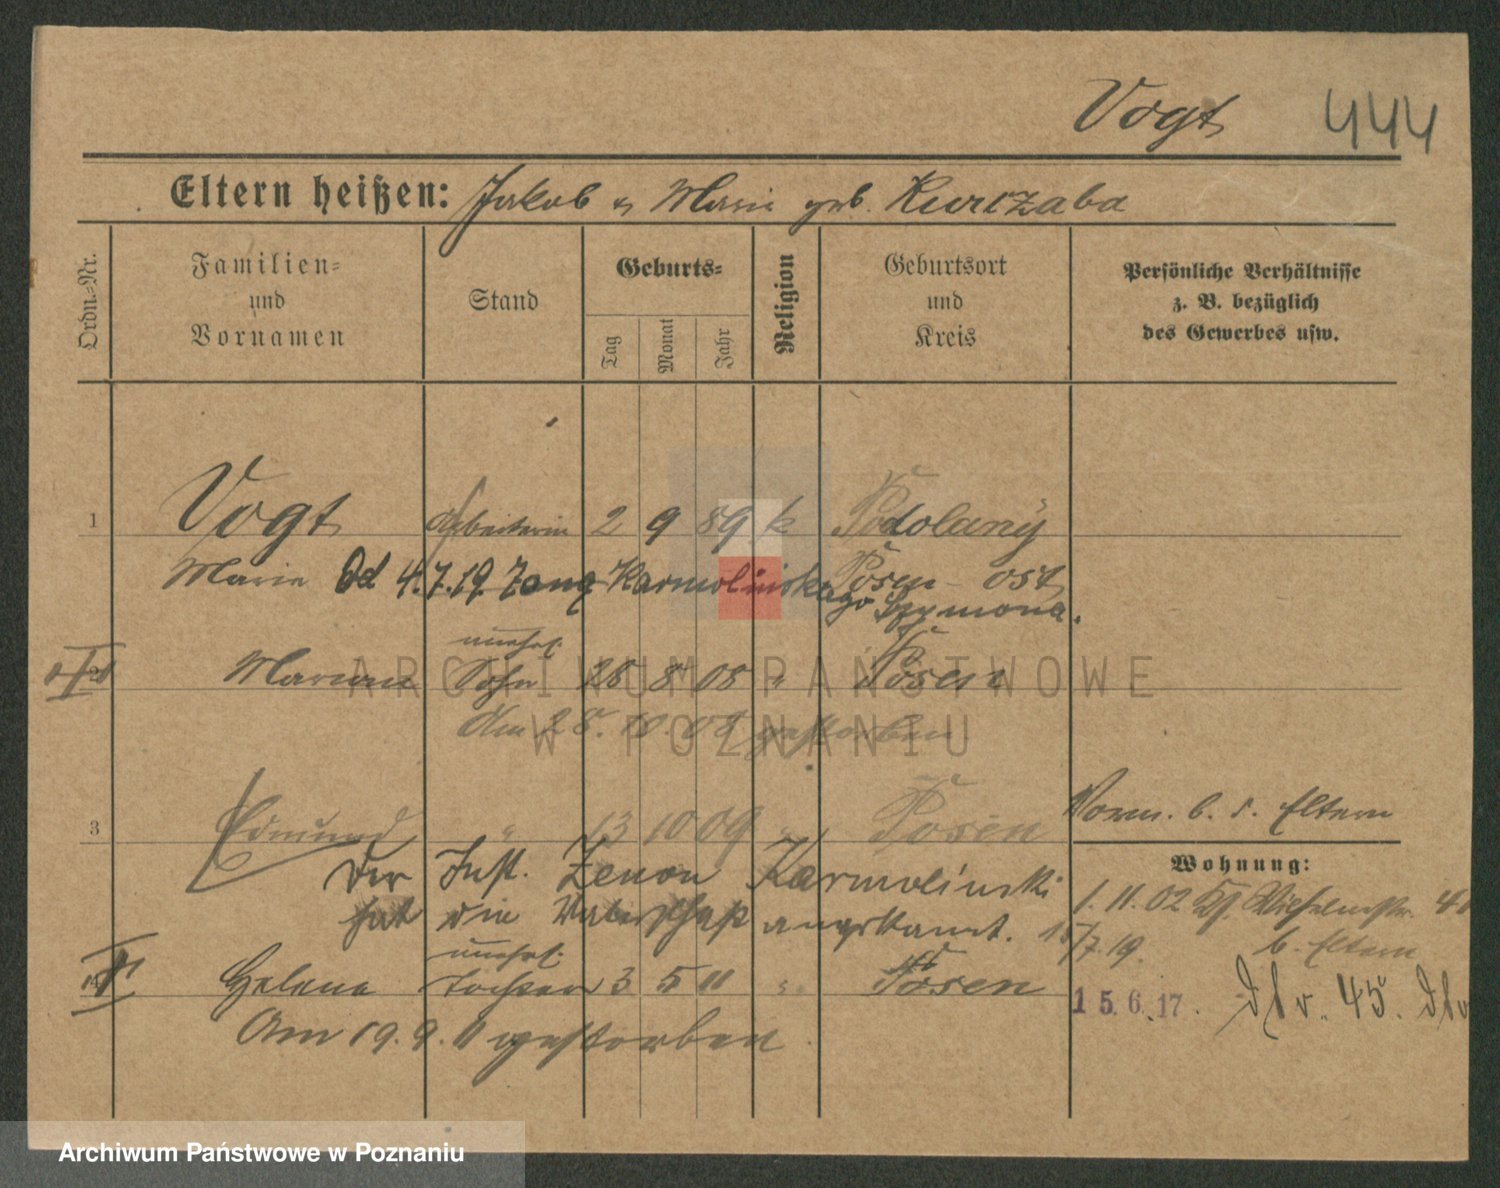 Vogt 444
Eltern heißen: Jakob u Marie geb. Kurczaba
Ordn.-Nr.
Familien- und Vornamen
Stand
Geburts-
Tag
Monat
Jahr
Religion
Geburtsort und Kreis
Persönliche Verhältnisse z. B. bezüglich des Gewerbes usw.
1 Vogt Arbeiterin 2 9 89 k Podolany
Marie Od 4.7.19. żoną Karmolińskiego Szymona. Posen-Ost
unehel.
2 Marian Sohn 28 8 08 " Posen
Am 28. 10. 08 gestorben
3 Edmund " 13 10 09 " Posen
Der Inst. Zenon Karmolinski
hat die Vaterschaft angekannt.
unehel.
4 Helena Tochter 3 5 11 " Posen
Am 19. 9. 11 gestorben
Vorm. b. d. Eltern
Wohnung:
1. 11. 02 Wilhelmstr.
7. 19. b. Eltern
15. 6. 17. 45.
ARCHIWUM PAŃSTWOWE
W POZNANIU
Archiwum Państwowe w Poznaniu